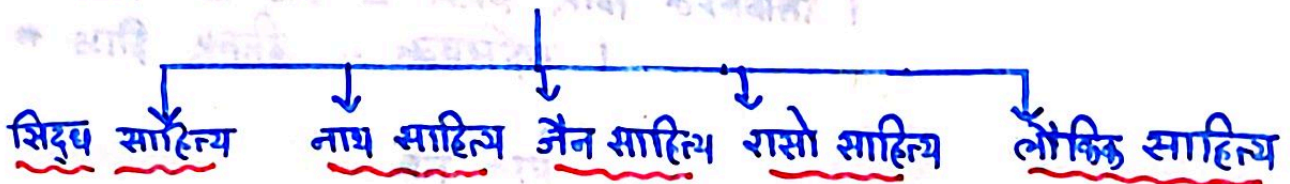 सिद्ध साहित्य नाथ साहित्य जैन साहित्य रासो साहित्य लौकिक साहित्य